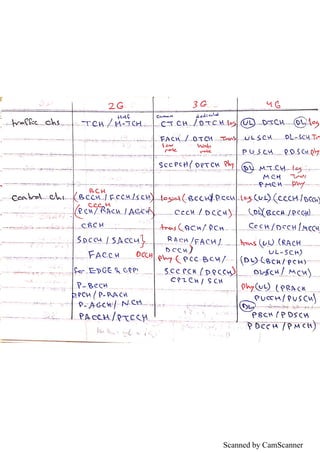 2G 3G 4G
HMS Common dedicated
traffic chs. TCH / M-TCH CTCH / DTCH log (UL) DTCH (DL) log
FACH / DTCH Trans ULSCH DL-SCH Tr
low rate high rate PUSCH PDSCH phy
SCCPCH / DPTCH Phy (DL) MTCH log
MCH Trans
BCH PMCH phy
Control chs (BCCH / FCCH / SCH) logical (BCCH / PCCH log (UL) (CCCH / DCCH)
CCCH
(PCH / RACH / AGCH) CCCH / DCCH) (DL) (BCCH / PCCH)
CBCH trans (BCH / PCH CCCH / DCCH / MCCH
SDCCH / SACCH} RACH / FACH / trans (UL) (RACH
FACCH DCCH DCCH) UL-SCH)
phy (PCCBCH / (DL) (BCH / PCH)
for EDGE & GPP SCCPCH / DPCCH) DLSCH / MCH)
P-BCCH CPICH / SCH phy (UL) (PRACH
PPCH / P-RACH PUCCH / PUSCH)
P-AGCH / NCH (DL)
PACCH / PTCCH PBCH / PDSCH
PDCCH / PMCH)
Scanned by CamScanner